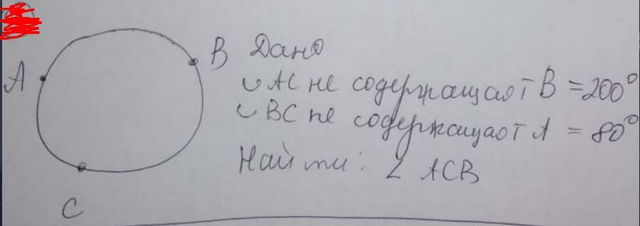 A
B
C
Дано
◡ AC не содержащая т B = 200°
◡ BC не содержащая т A = 80°
Найти: ∠ ACB